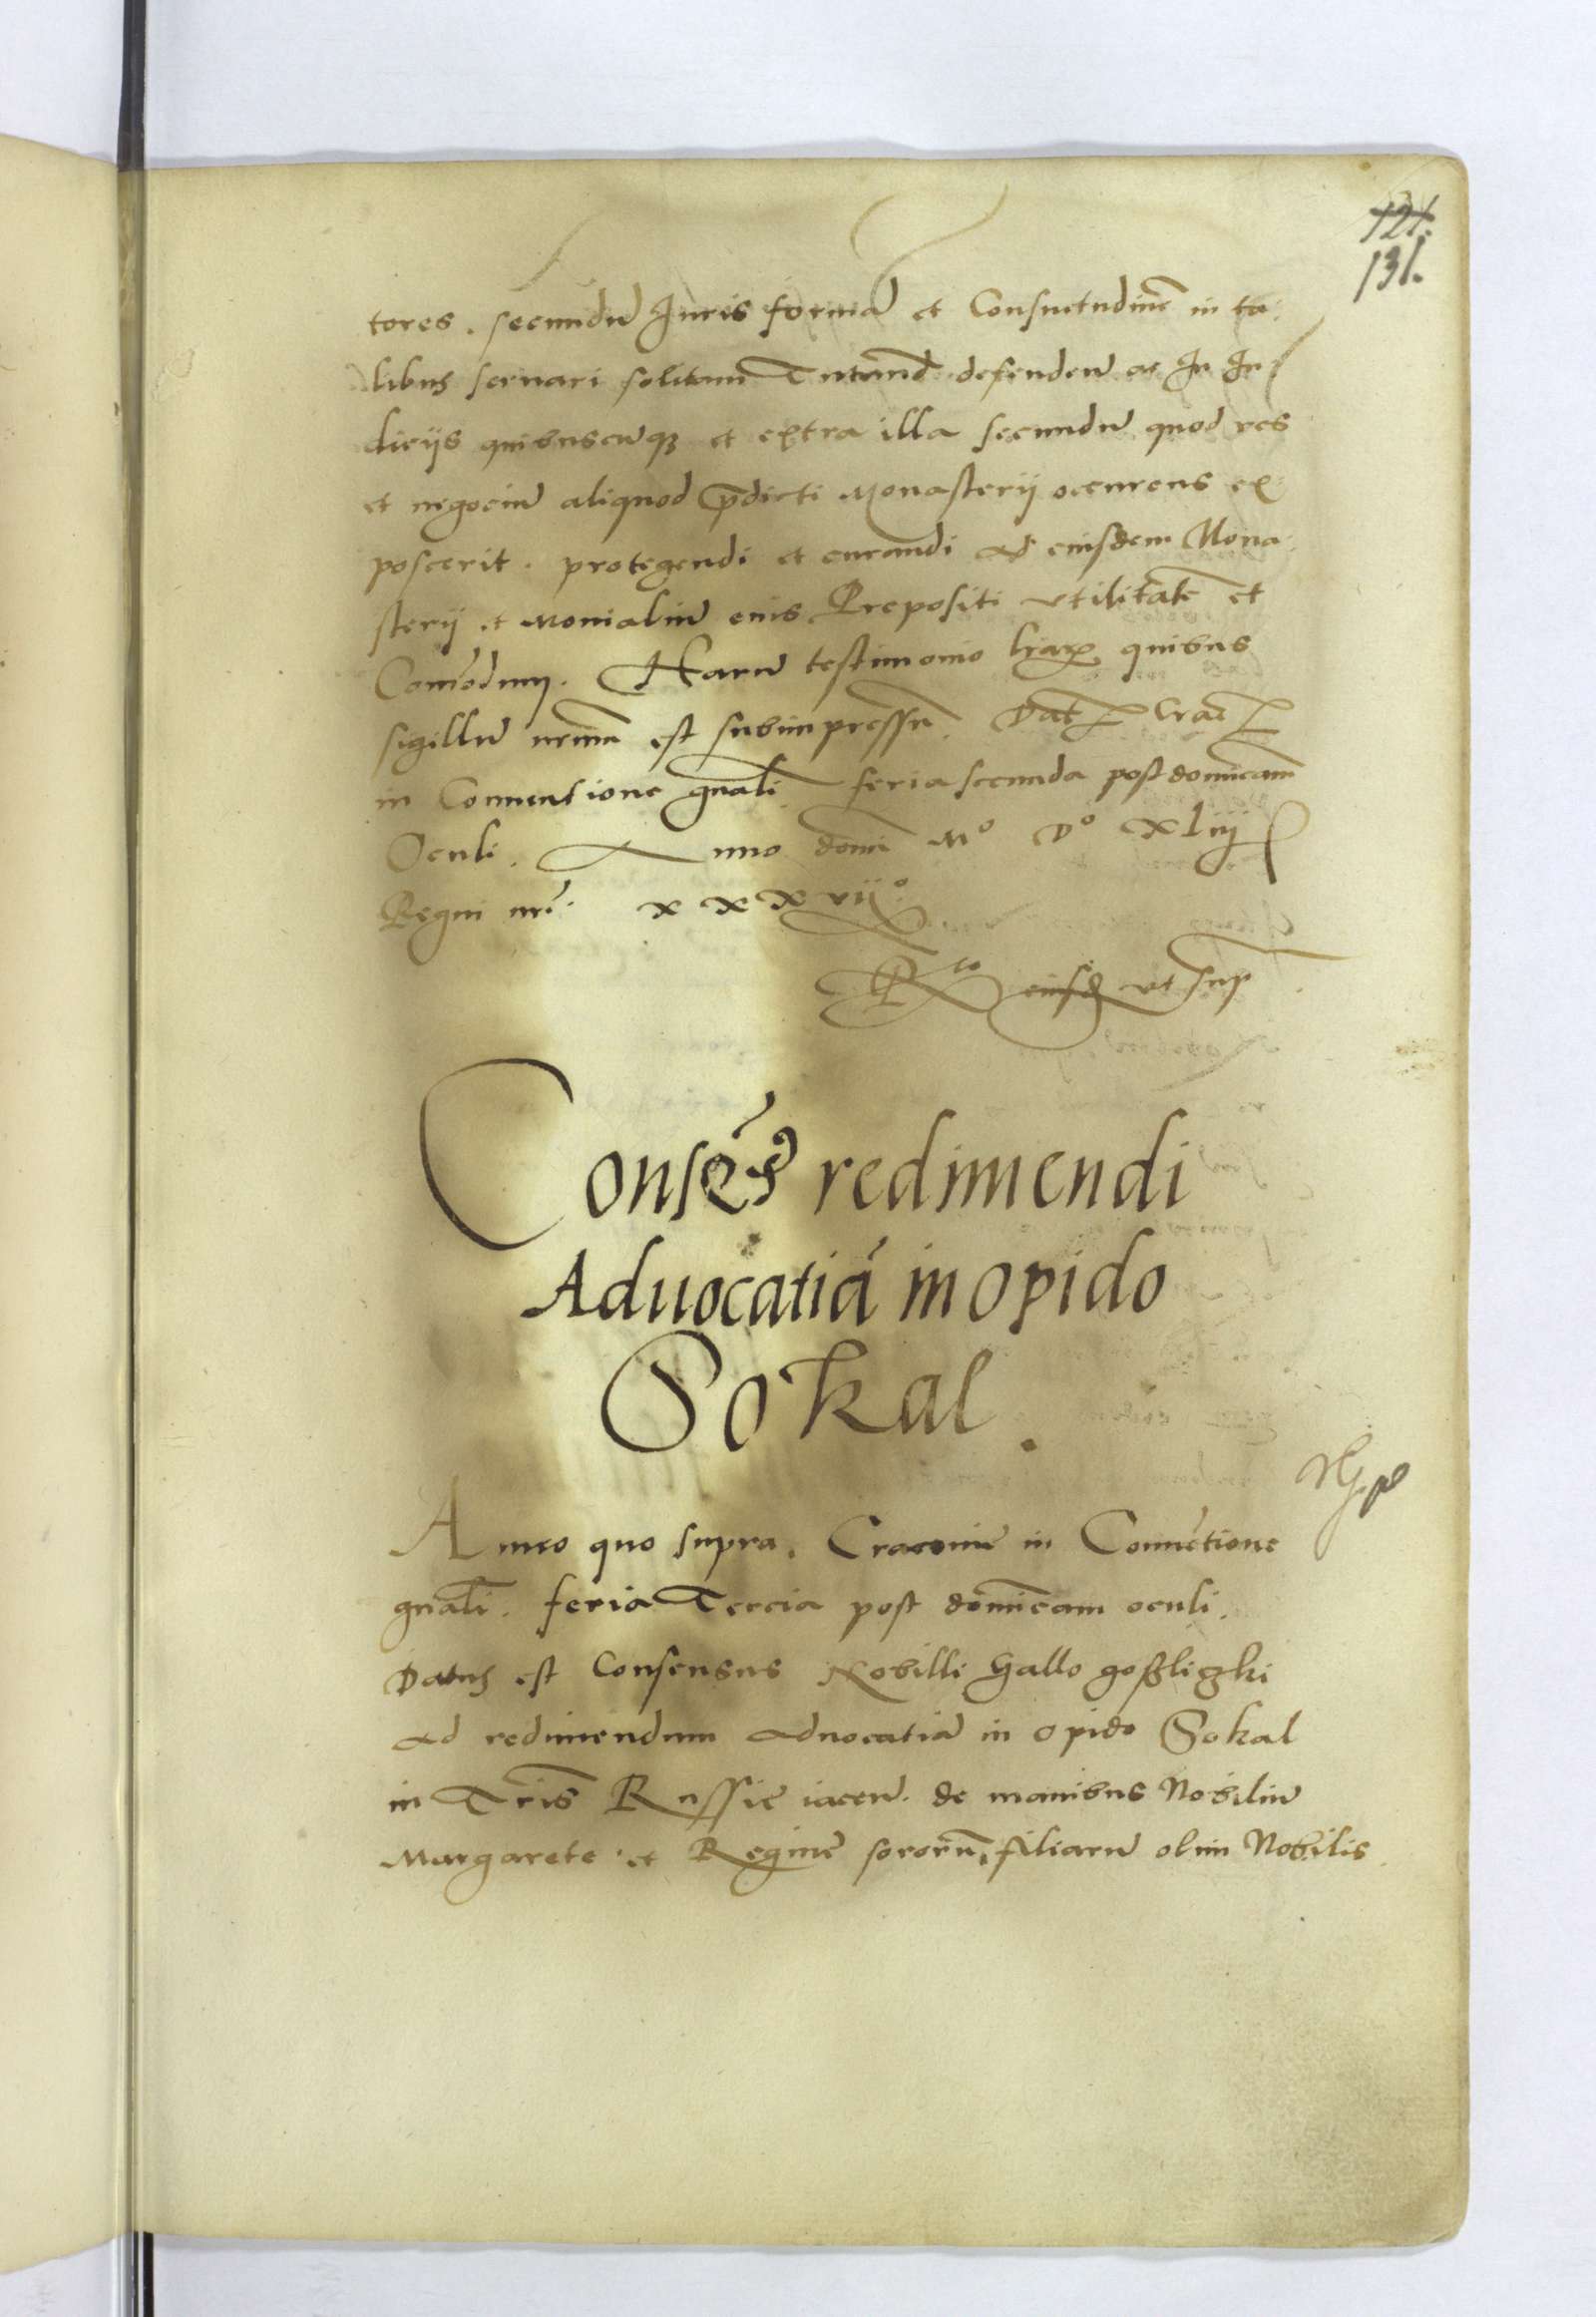 121.
131.
tores . secundũ Juris formã et Consuetudinẽ in ta-
libus seruari solitam Tutand defendeñ ac In Ju
dicijs quibuscũqꝫ et extra illa secundũ quod res
et negociũ aliquod p̃dicti Monasterij occurens ex-
poscerit . protegendi et curandi ad eiusdem Mona-
sterij et Monialiũ eius Prepositi vtilitatẽ et
Com̃odum . Harũ testimonio l̃raꝝ quibus
sigillũ nr̃um est subimpressũ . Dat Crac
in Conuentione gnãli feria secunda post domĩcam
Oculi . Anno domĩ Mº Dº xliij
Regni nr̃i . xxxvijº.
Rto eiusd vt sup
Consẽs9 redimendi
Aduocatiã in opido
Sokal .
Anno quo supra . Cracouie in Conuẽtione
gnãli . feria Tercia post domĩcam oculi .
Datus est Consensus Nobilli Gallo goßligzki
ad redimendum aduocatiã in opido Sokal
in Tr̃is Russie iaceñ . de manibus Nobiliũ
Margarete et Regine sororũ, filiarũ olim Nobilis